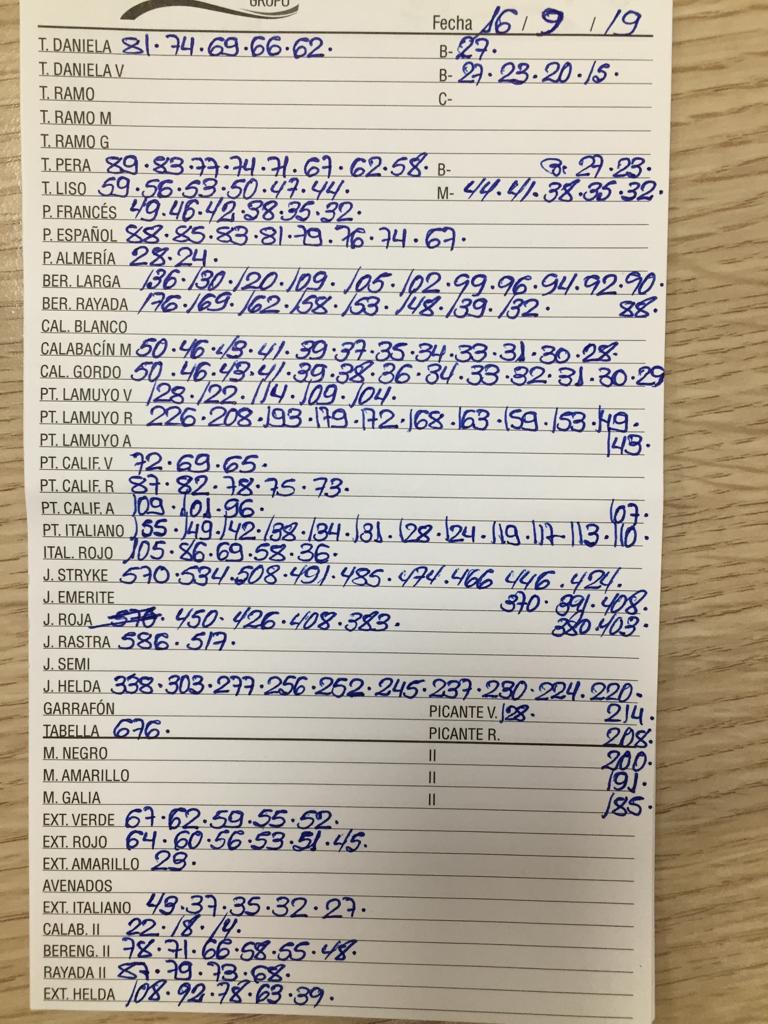 GRUPO
Fecha 16 / 9 / 19
T. DANIELA 81·74·69·66·62· B- 27·
T. DANIELA V B- 27·23·20·15·
T. RAMO C-
T. RAMO M
T. RAMO G
T. PERA 89·83·77·74·71·67·62·58· B- B: 27·23·
T. LISO 59·56·53·50·47·44· M- 44·41·38·35·32·
P. FRANCÉS 49·46·42·38·35·32·
P. ESPAÑOL 88·85·83·81·79·76·74·67·
P. ALMERÍA 28·24·
BER. LARGA 136·130·120·109·105·102·99·96·94·92·90·
BER. RAYADA 176·169·162·158·153·148·139·132· 88·
CAL. BLANCO
CALABACÍN M 50·46·43·41·39·37·35·34·33·31·30·28·
CAL. GORDO 50·46·43·41·39·38·36·34·33·32·31·30·29
PT. LAMUYO V 128·122·114·109·104·
PT. LAMUYO R 226·208·193·179·172·168·163·159·153·149·
PT. LAMUYO A 143·
PT. CALIF. V 72·69·65·
PT. CALIF. R 87·82·78·75·73·
PT. CALIF. A 109·101·96· 107·
PT. ITALIANO 155·149·142·138·134·131·128·124·119·117·113·110·
ITAL. ROJO 105·86·69·58·36·
J. STRYKE 570·534·508·491·485·474·466 446·424·
J. EMERITE 370·391·408·
J. ROJA 450·426·408·383· 380·403·
J. RASTRA 586·517·
J. SEMI
J. HELDA 338·303·277·256·252·245·237·230·224·220·
GARRAFÓN PICANTE V. 128· 214·
TABELLA 676· PICANTE R. 208·
M. NEGRO II 200·
M. AMARILLO II 191·
M. GALIA II 185·
EXT. VERDE 67·62·59·55·52·
EXT. ROJO 64·60·56·53·51·45·
EXT. AMARILLO 29·
AVENADOS
EXT. ITALIANO 49·37·35·32·27·
CALAB. II 22·18·14·
BERENG. II 78·71·66·58·55·48·
RAYADA II 87·79·73·68·
EXT. HELDA 108·92·78·63·39·